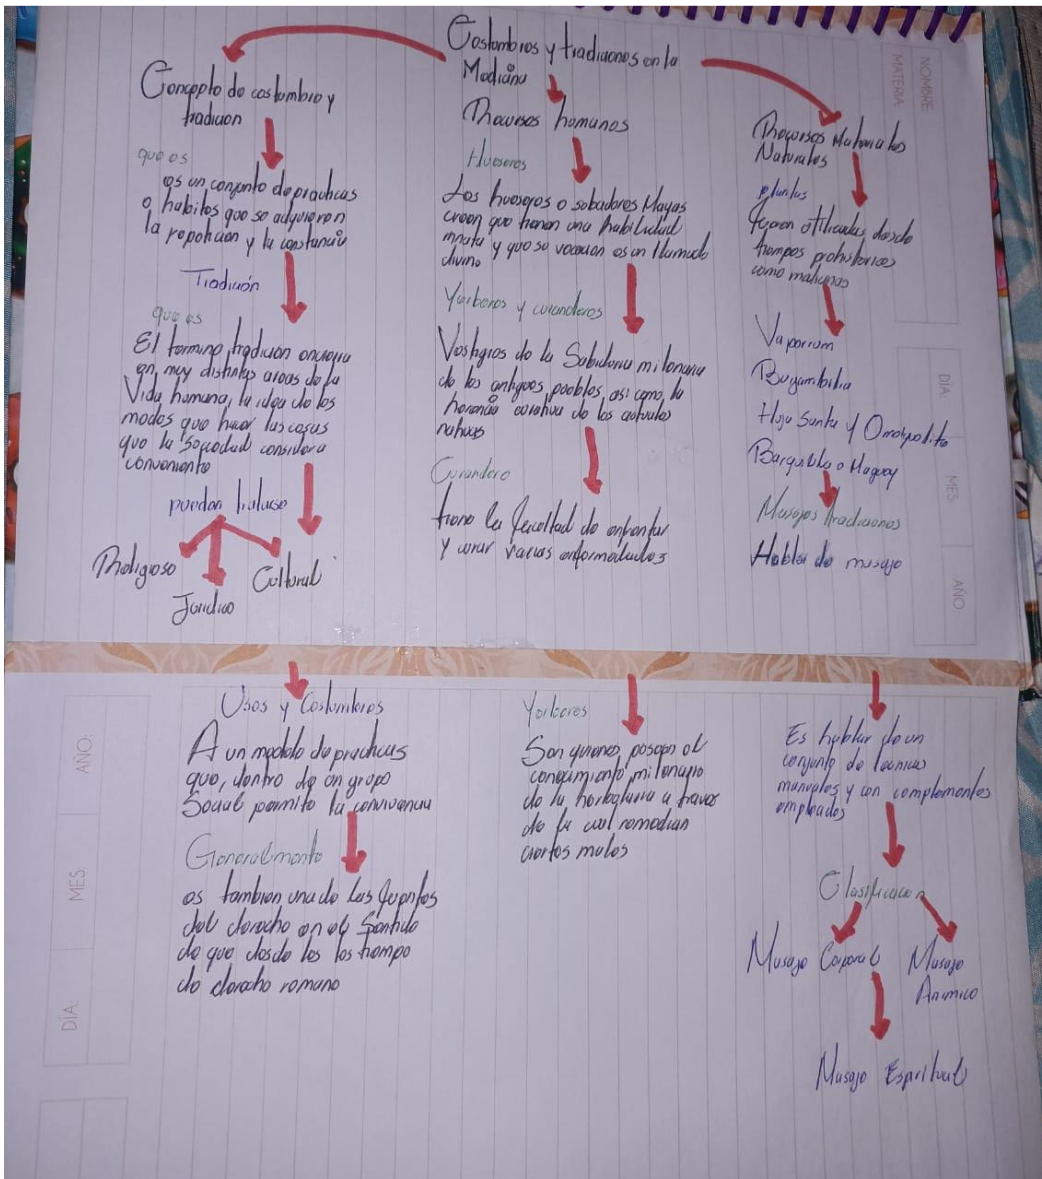 Costumbres y tradiciones en la
Medicina
Concepto de costumbre y
tradicion
que es
es un conjunto de practicas
o habitos que se adquieren
la repeticion y la constancia
Tradición
que es
El termino tradicion encierra
en muy distintas areas de la
Vida humana, la idea de los
modos que hacer las cosas
que la Sociedad considera
conveniente
pueden tratarse
Religioso
Juridico
Cultural
Usos y Costumbres
A un modelo de practicas
que, dentro de un grupo
Social permite la convivencia
Generalmente
es tambien una de las fuentes
del derecho en el Sentido
de que desde los los tiempo
de derecho romano
Recursos humanos
Hueseros
Los hueseros o sobadores Mayas
creen que tienen una habilidad
innata y que su vocacion es un llamado
divino
Yerberos y curanderos
Vestigios de la Sabiduria milenaria
de los antiguos pueblos, asi como, la
herencia curativa de los actuales
nahuas
Curandero
tiene la facultad de enfrentar
y curar varias enfermedades
Yerberos
Son quienes poseen el
conocimiento milenario
de la herbolaria a traves
de la cual remedian
ciertos males
Recursos Materiales
Naturales
plantas
fueron utilizadas desde
tiempos prehistoricos
como medicinas
Vaporrum
Bugambilia
Hoja Santa y
o Maguey
Masajes tradiciones
Hablar de masaje
Es hablar de un
conjunto de tecnicas
manuales y con complementos
empleados
Clasificacion
Masaje Corporal
Masaje
Animico
Masaje Espiritual
NOMBRE:
MATERIA:
DÍA:
MES:
AÑO:
AÑO:
MES:
DÍA: